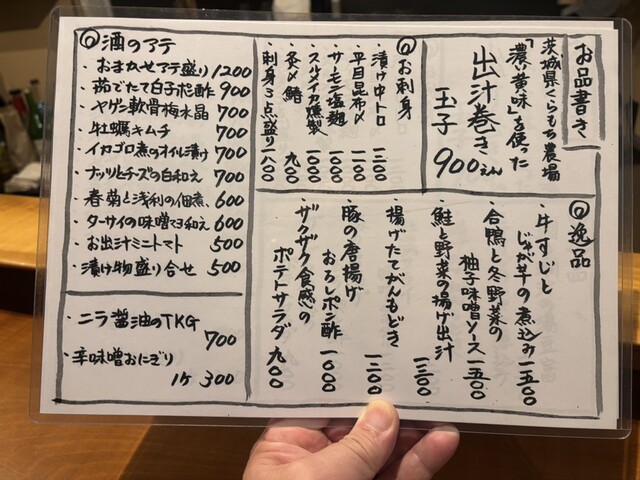 お品書き
茨城県くらもち農場
「濃い黄味」を使った
出汁巻き
玉子 900えん
◎お刺身
・漬け中トロ 一二〇〇
・平目昆布〆 一〇〇〇
・サーモン塩麹 一〇〇〇
・スルメイカ燻製 一〇〇〇
・炙〆鯖 九〇〇
・刺身3点盛り 一八〇〇
◎逸品
・牛すじと
じゃが芋の煮込み 一五〇〇
・合鴨と冬野菜の
柚子味噌ソース 一五〇〇
・鮭と野菜の揚げ出汁 一三〇〇
・揚げたてがんもどき 一二〇〇
・豚の唐揚げ
おろしポン酢 一〇〇〇
・ザクザク食感の
ポテトサラダ 九〇〇
◎酒のアテ
・おまかせアテ盛り 1200
・茹でたて白子ポン酢 900
・ヤゲン軟骨梅水晶 700
・牡蠣キムチ 700
・イカゴロ煮のオイル漬け 700
・ナッツとチーズの白和え 700
・春菊と浅利の佃煮 600
・ターサイの味噌マヨ和え 600
・お出汁ミニトマト 500
・漬け物盛り合せ 500
・ニラ醤油のTKG
700
・辛味噌おにぎり
1ケ 300